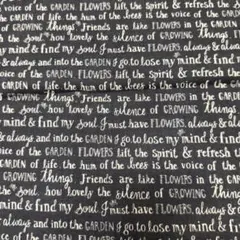 voice of the GARDEN FLOWERS lift the Spirit, & refresh the
GARDEN of life. the hum of the bees is the voice of the
of GROWING things Friends are like FLOWERS in the GARDEN
the Soul how lovely the silence of GROWING things
my mind & find my Soul I must have FLOWERS, always & al
always and into the GARDEN I go to lose my mind & find
voice of the GARDEN FLOWERS lift the Spirit, & refresh the
GARDEN of life. the hum of the bees is the voice of the G
of GROWING things Friends are like FLOWERS in the GARDEN
the Soul how lovely the silence of GROWING things
my mind & find my Soul I must have FLOWERS, always & alw
always and into the GARDEN I go to lose my mind & find
voice of the GARDEN FLOWERS lift the Spirit, & refresh t
GARDEN of life. the hum of the bees is the voice of the G
GROWING things Friends are like FLOWERS in the GARDE
the Soul how lovely the silence of GROWING things
mind & find my Soul I must have FLOWERS, always & a
always and into the GARDEN I go to lose my mind & fin
voice of the GARDEN FLOWERS lift the Spirit, & refresh